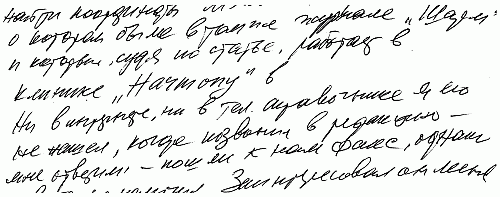 найти координаты
о котором была в том же журнале „Шадем"
и который, судя по статье, работает в
клинике „Начтопу" в
Ни в интернете, ни в тел. справочнике я его
не нашел, когда позвонил в редакцию –
мне ответили – пошли к нам факс, однако
Заинтересовал он меня